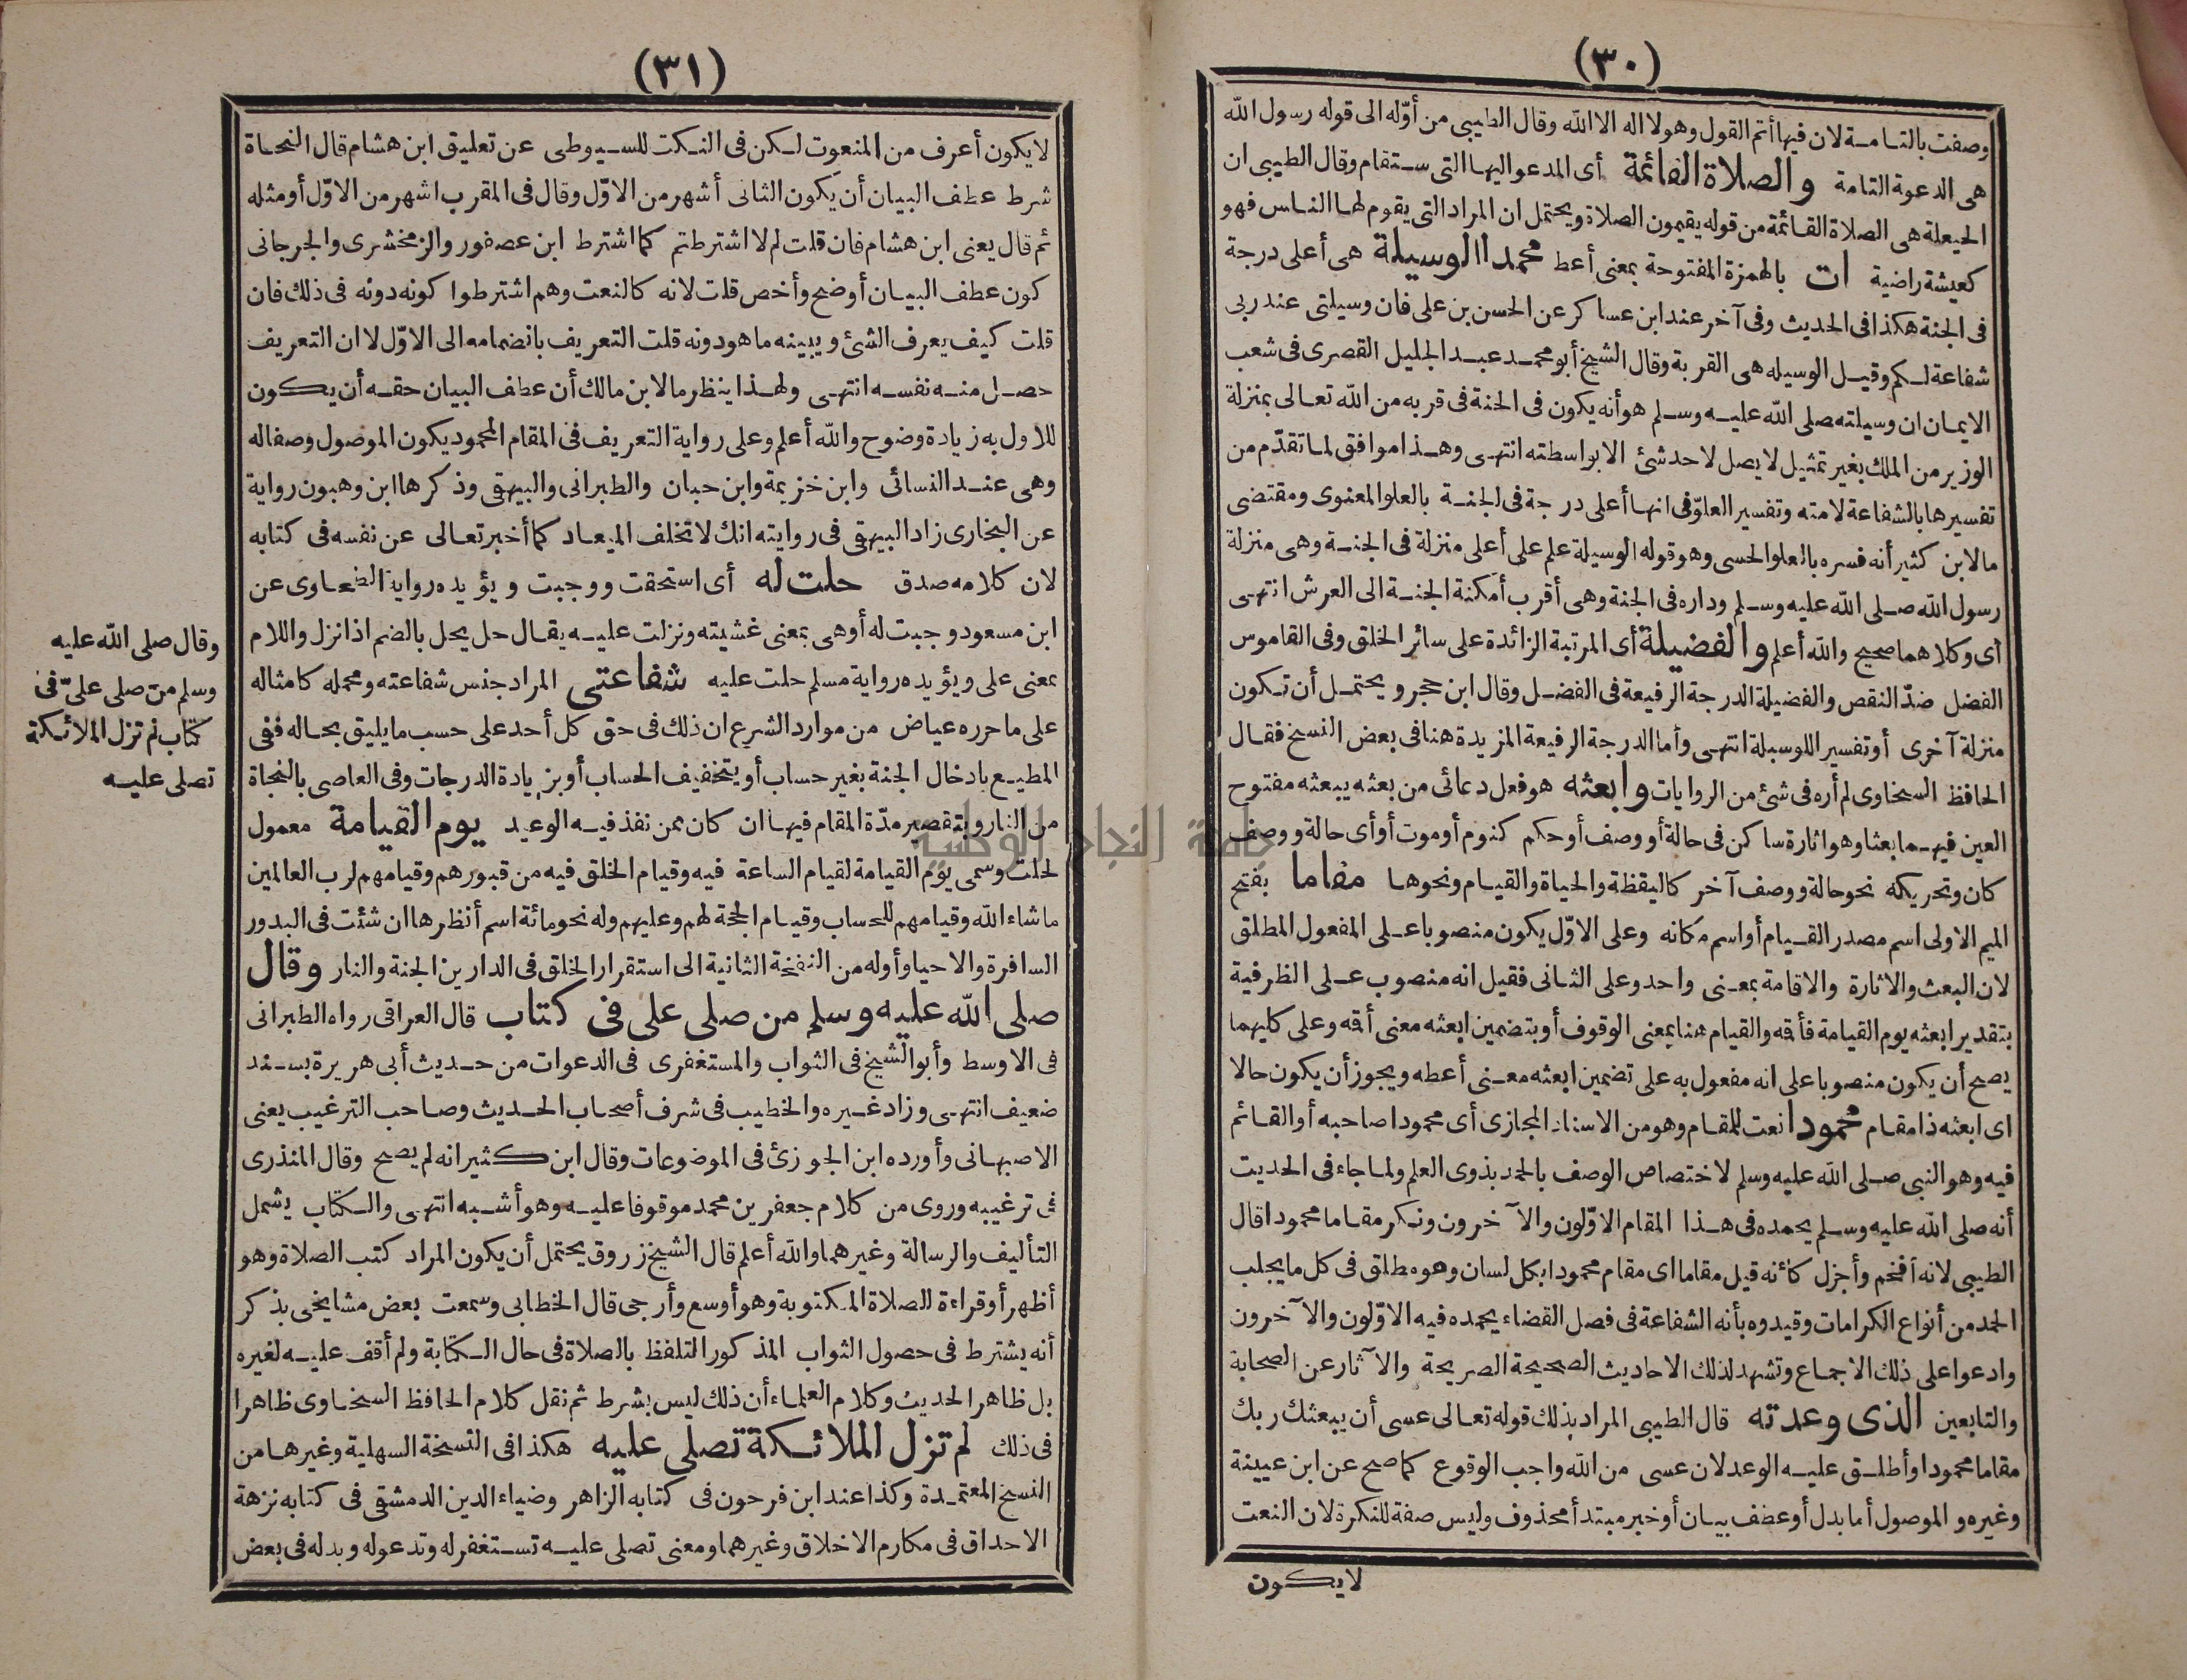 (٣٠)
وصفت بالتامة لان فيها أتم القول وهو لا اله الا الله وقال الطيبى من أوّله الى قوله رسول الله
هى الدعوة التامة والصلاة القائمة أى المدعو اليها التى ستقام وقال الطيبى ان
الحيعلة هى الصلاة القائمة من قوله يقيمون الصلاة ويحتمل ان المراد التى يقوم لها الناس فهو
كعيشة راضية ات بالهمزة المفتوحة بمعنى أعط محمدا الوسيلة هى أعلى درجة
فى الجنة هكذا فى الحديث وفى آخر عند ابن عساكر عن الحسن بن على فان وسيلتى عند ربى
شفاعة لكم وقيل الوسيله هى القربة وقال الشيخ أبو محمد عبد الجليل القصرى فى شعب
الايمان ان وسيلته صلى الله عليه وسلم هو أنه يكون فى الجنة فى قربه من الله تعالى بمنزلة
الوزير من الملك بغير تمثيل لا يصل لاحد شئ الا بواسطته انتهى وهذا موافق لما تقدّم من
تفسيرها بالشفاعة لامته وتفسير العلوّ فى انها أعلى درجة فى الجنة بالعلو المعنوى ومقتضى
ما لابن كثير أنه فسره بالعلو الحسى وهو قوله الوسيلة علم على أعلى منزلة فى الجنة وهى منزلة
رسول الله صلى الله عليه وسلم وداره فى الجنة وهى أقرب أمكنة الجنة الى العرش انتهى
أى وكلاهما صحيح والله أعلم والفضيلة أى المرتبة الزائدة على سائر الخلق وفى القاموس
الفضل ضدّ النقص والفضيلة الدرجة الرفيعة فى الفضل وقال ابن حجر ويحتمل أن تكون
منزلة آخرى أو تفسير اللوسيلة انتهى وأما الدرجة الرفيعة المزيدة هنا فى بعض النسخ فقال
الحافظ السخاوى لم أره فى شئ من الروايات وابعثه هو فعل دعائى من بعثه يبعثه مفتوح
العين فيهما بعثا وهو اثارة ساكن فى حالة أو وصف أو حكم كنوم أو موت أو أى حالة ووصف
كان وتحريكه نحو حالة ووصف آخر كاليقظة والحياة والقيام ونحوها مقاما بفتح
الميم الاولى اسم مصدر القيام أو اسم مكانه وعلى الاوّل يكون منصوبا على المفعول المطلق
لان البعث والاثارة والاقامة بمعنى واحد وعلى الثانى فقيل انه منصوب على الظرفية
بتقدير ابعثه يوم القيامة فأقه والقيام هنا بمعنى الوقوف أو بتضمين ابعثه معنى أقه وعلى كليهما
يصح أن يكون منصوبا على انه مفعول به على تضمين ابعثه معنى أعطه ويجوز أن يكون حالا
اى ابعثه ذا مقام محمودا نعت للمقام وهو من الاسناد المجازى أى محمودا صاحبه أو القائم
فيه وهو النبى صلى الله عليه وسلم لاختصاص الوصف بالحمد بذوى العلم ولما جاء فى الحديث
أنه صلى الله عليه وسلم يحمده فى هذا المقام الاوّلون والآخرون ونكر مقاما محمودا قال
الطيبى لانه أفخم وأجزل كأنه قيل مقاما اى مقام محمودا بكل لسان وهو مطلق فى كل ما يجلب
الحمد من أنواع الكرامات وقيدوه بأنه الشفاعة فى فصل القضاء يحمده فيه الاوّلون والآخرون
وادعوا على ذلك الاجماع وتشهد لذلك الاحاديث الصحيحة الصريحة والآثار عن الصحابة
والتابعين الذى وعدته قال الطيبى المراد بذلك قوله تعالى عسى أن يبعثك ربك
مقاما محمودا وأطلق عليه الوعد لان عسى من الله واجب الوقوع كما صح عن ابن عيينة
وغيره و الموصول أما بدل أو عطف بيان أو خبر مبتدأ محذوف وليس صفة للنكرة لان النعت
لا يكون
(٣١)
لا يكون أعرف من المنعوت لكن فى النكت للسيوطى عن تعليق ابن هشام قال النحاة
شرط عطف البيان أن يكون الثانى أشهر من الاوّل وقال فى المقرب اشهر من الاوّل أو مثله
ثم قال يعنى ابن هشام فان قلت لم لا اشترطتم كما اشترط ابن عصفور والزمخشرى والجرجانى
كون عطف البيان أوضح وأخص قلت لانه كالنعت وهم اشترطوا كونه دونه فى ذلك فان
قلت كيف يعرف الشئ ويبينه ما هو دونه قلت التعريف بانضمامه الى الاوّل لا ان التعريف
حصل منه نفسه انتهى ولهذا ينظر ما لابن مالك أن عطف البيان حقه أن يكون
للاول به زيادة وضوح والله أعلم وعلى رواية التعريف فى المقام المحمود يكون الموصول وصفا له
وهى عند النسائى وابن خزيمة وابن حبان والطبرانى والبيهقى وذكرها ابن وهبون رواية
عن البخارى زاد البيهقى فى روايته انك لا تخلف الميعاد كما أخبر تعالى عن نفسه فى كتابه
لان كلامه صدق حلت له أى استحقت ووجبت ويؤيده رواية الطحاوى عن
ابن مسعود وجبت له أو هى بمعنى غشيته ونزلت عليه يقال حل يحل بالضم اذا نزل واللام
بمعنى على ويؤيده رواية مسلم حلت عليه شفاعتى المراد جنس شفاعته ومحمله كامثاله
على ما حرره عياض من موارد الشرع ان ذلك فى حق كل أحد على حسب ما يليق بحاله ففى
المطيع بادخال الجنة بغير حساب أو بتخفيف الحساب أو بزيادة الدرجات وفى العاصى بالنجاة
من النار و بتقصير مدّة المقام فيها ان كان ممن نفذ فيه الوعيد يوم القيامة معمول
لحلت وسمى يوم القيامة لقيام الساعة فيه وقيام الخلق فيه من قبورهم وقيامهم لرب العالمين
ما شاء الله وقيامهم للحساب وقيام الحجة لهم وعليهم وله نحو مائة اسم أنظرها ان شئت فى البدور
السافرة والاحيا وأوله من النفخة الثانية الى استقرار الخلق فى الدارين الجنة والنار وقال
صلى الله عليه وسلم من صلى على فى كتاب قال العراقى رواه الطبرانى
فى الاوسط وأبو الشيخ فى الثواب والمستغفرى فى الدعوات من حديث أبى هريرة بسند
ضعيف انتهى وزاد غيره والخطيب فى شرف أصحاب الحديث وصاحب الترغيب يعنى
الاصبهانى وأورده ابن الجوزئ فى الموضوعات وقال ابن كثير انه لم يصح وقال المنذرى
فى ترغيبه وروى من كلام جعفر بن محمد موقوفا عليه وهو أشبه انتهى والكتاب يشمل
التأليف والرسالة وغيرهما والله أعلم قال الشيخ زروق يحتمل أن يكون المراد كتب الصلاة وهو
أظهر أو قراءة الصلاة المكتوبة وهو أوسع وأرجى قال الخطابى وسمعت بعض مشايخى بذكر
أنه يشترط فى حصول الثواب المذكور التلفظ بالصلاة فى حال الكتابة ولم أقف عليه لغيره
بل ظاهر الحديث وكلام العلماء أن ذلك ليس بشرط ثم نقل كلام الحافظ السخاوى ظاهرا
فى ذلك لم تزل الملائكة تصلى عليه هكذا فى النسخة السهلية وغيرها من
النسخ المعتمدة وكذا عند ابن فرحون فى كتابه الزاهر وضياء الدين الدمشقى فى كتابه نزهة
الاحداق فى مكارم الاخلاق وغيرهما ومعنى تصلى عليه تستغفر له وتدعو له وبدله فى بعض
وقال صلى الله عليه
وسلم من صلى علىّ فى
كتاب لم تزل الملائكة
تصلى عليه
جامعة النجاح الوطنية